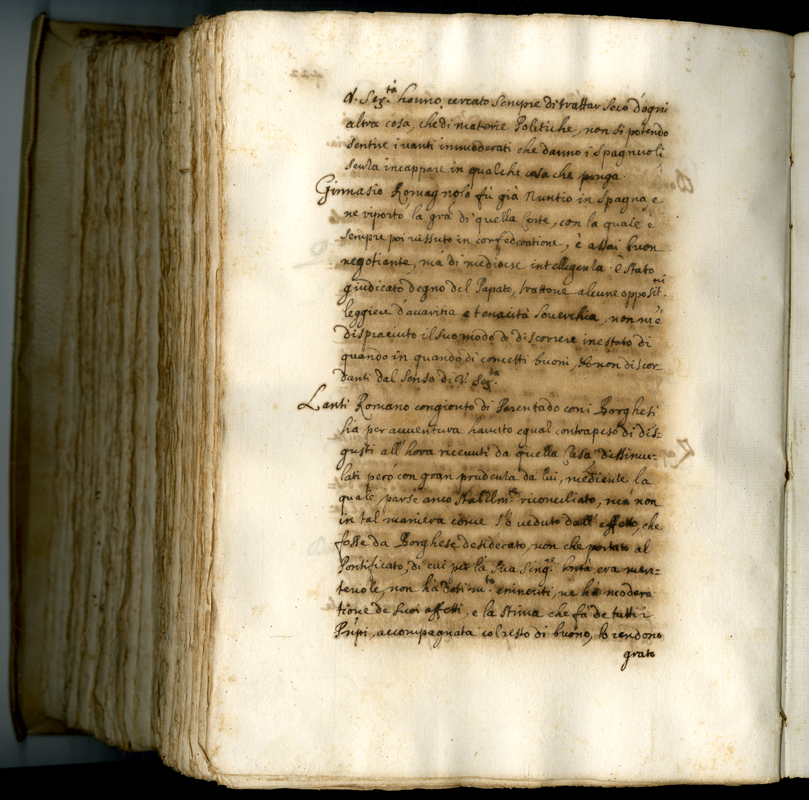 V. Ser.tà hanno, cercato sempre di trattar seco d'ogni
altra cosa, che di materie Politiche, non si potendo
sentire i vanti immoderati che danno i Spagnuoli
senza incappare in qualche cosa che ponga
Ginnasio Romagnolo fù già Nuntio in Spagna e
ne riportò la gra di quella Corte, con la quale è
sempre poi vissuto in confederatione, è assai buon
negotiante, mà di mediocre intelligenza. È stato
giudicato degno del Papato, trattone alcune oppositni.
leggiere d'avaritia e tenacità soverchia, non m'è
dispiaciuto il suo modo di discorrere in estato di
quando in quando di concetti buoni, non discor-
danti dal senso di V. Ser.tà
Lanti Romano congionto di Parentado con i Borghesi
hà per avventura havuto egual contrapeso di dis=
gusti all'hora ricevuti da quella Casa dissimu-
lati però con gran prudenza da lui, mediente la
quale, parse anco stabilm.te riconciliato, mà non
in tal maniera come s'è veduto dall'effetto, che
fosse da Borghese desiderato, non che portato al
Pontificato, di cui per la sua sing.r bontà era meri=
tevole, non hà doti m.to eminenti, ne hà modera
tione de suoi affetti, e la stima che fà de tutti i
Prñpi, accompagnata col resto di buono, lo rendono
grato